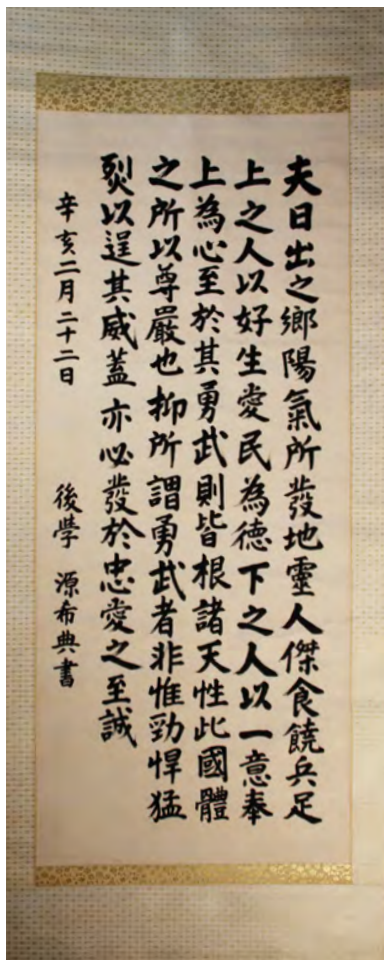 夫日出之鄉陽氣所發地靈人傑食饒兵足
上之人以好生愛民為德下之人以一意奉
上為心至於其勇武則皆根諸天性此國體
之所以尊嚴也抑所謂勇武者非惟勁悍猛
烈以逞其威蓋亦必發於忠愛之至誠
辛亥二月二十二日 後學 源希典書